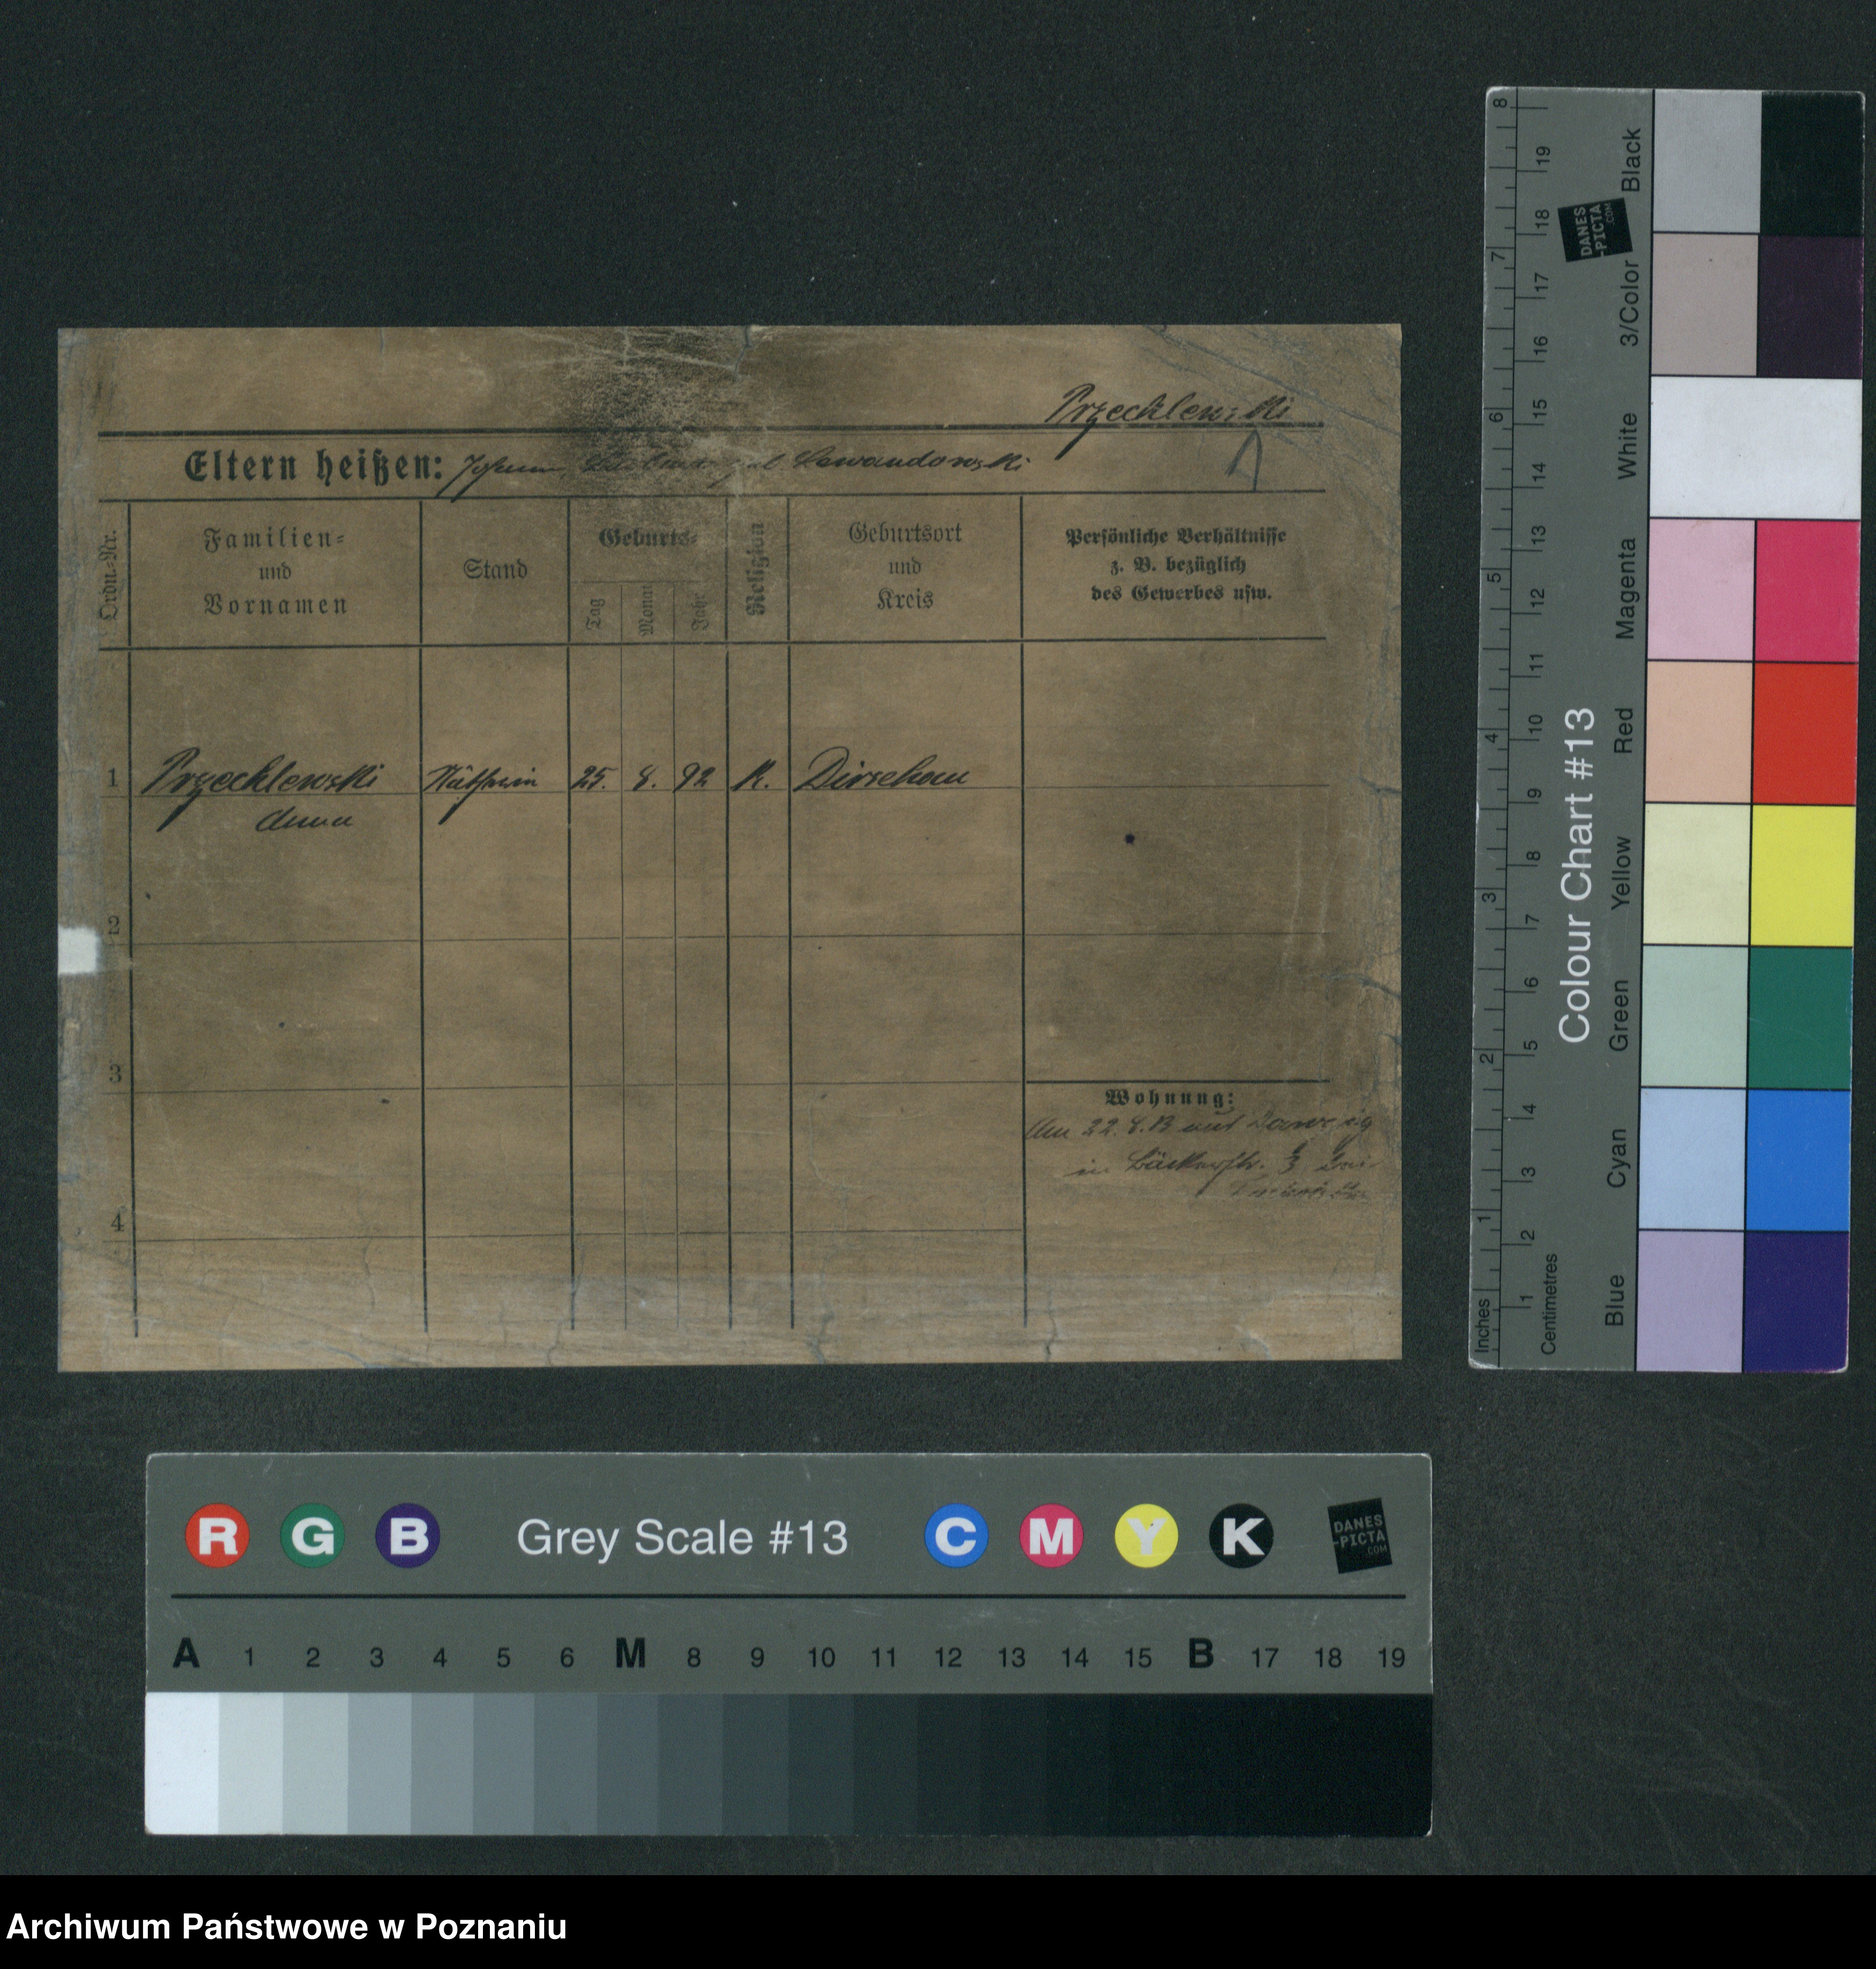 Przechlewski
A
Eltern heißen: Johann geb Lewandowski
Ordn.-Nr.
Familien-
und
Vornamen
Stand
Geburts-
Tag
Monat
Jahr
Religion
Geburtsort
und
Kreis
Persönliche Verhältnisse
z. B. bezüglich
des Gewerbes usw.
1 Przechlewski Näherin 25. 8. 92 K. Dirschau
Anna
2
3
4
Wohnung:
Am 22. 8. 13 aus Danzig
in Bäckerstr.
Colour Chart #13
Inches 1 2 3 4 5 6 7 8
Centimetres 1 2 3 4 5 6 7 8 9 10 11 12 13 14 15 16 17 18 19
Blue Cyan Green Yellow Red Magenta White 3/Color Black
DANES
-PICTA
.COM
R G B Grey Scale #13 C M Y K
DANES
-PICTA
.COM
A 1 2 3 4 5 6 M 8 9 10 11 12 13 14 15 B 17 18 19
Archiwum Państwowe w Poznaniu